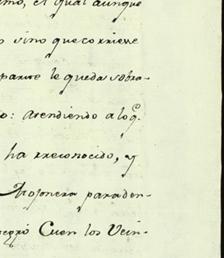 imo, el qual aunque
o sino que corriese
parase le queda sobra-
o: atendiendo a lo q.e
ha rreconocido, y
Proponera para den-
Cu en los Vein-